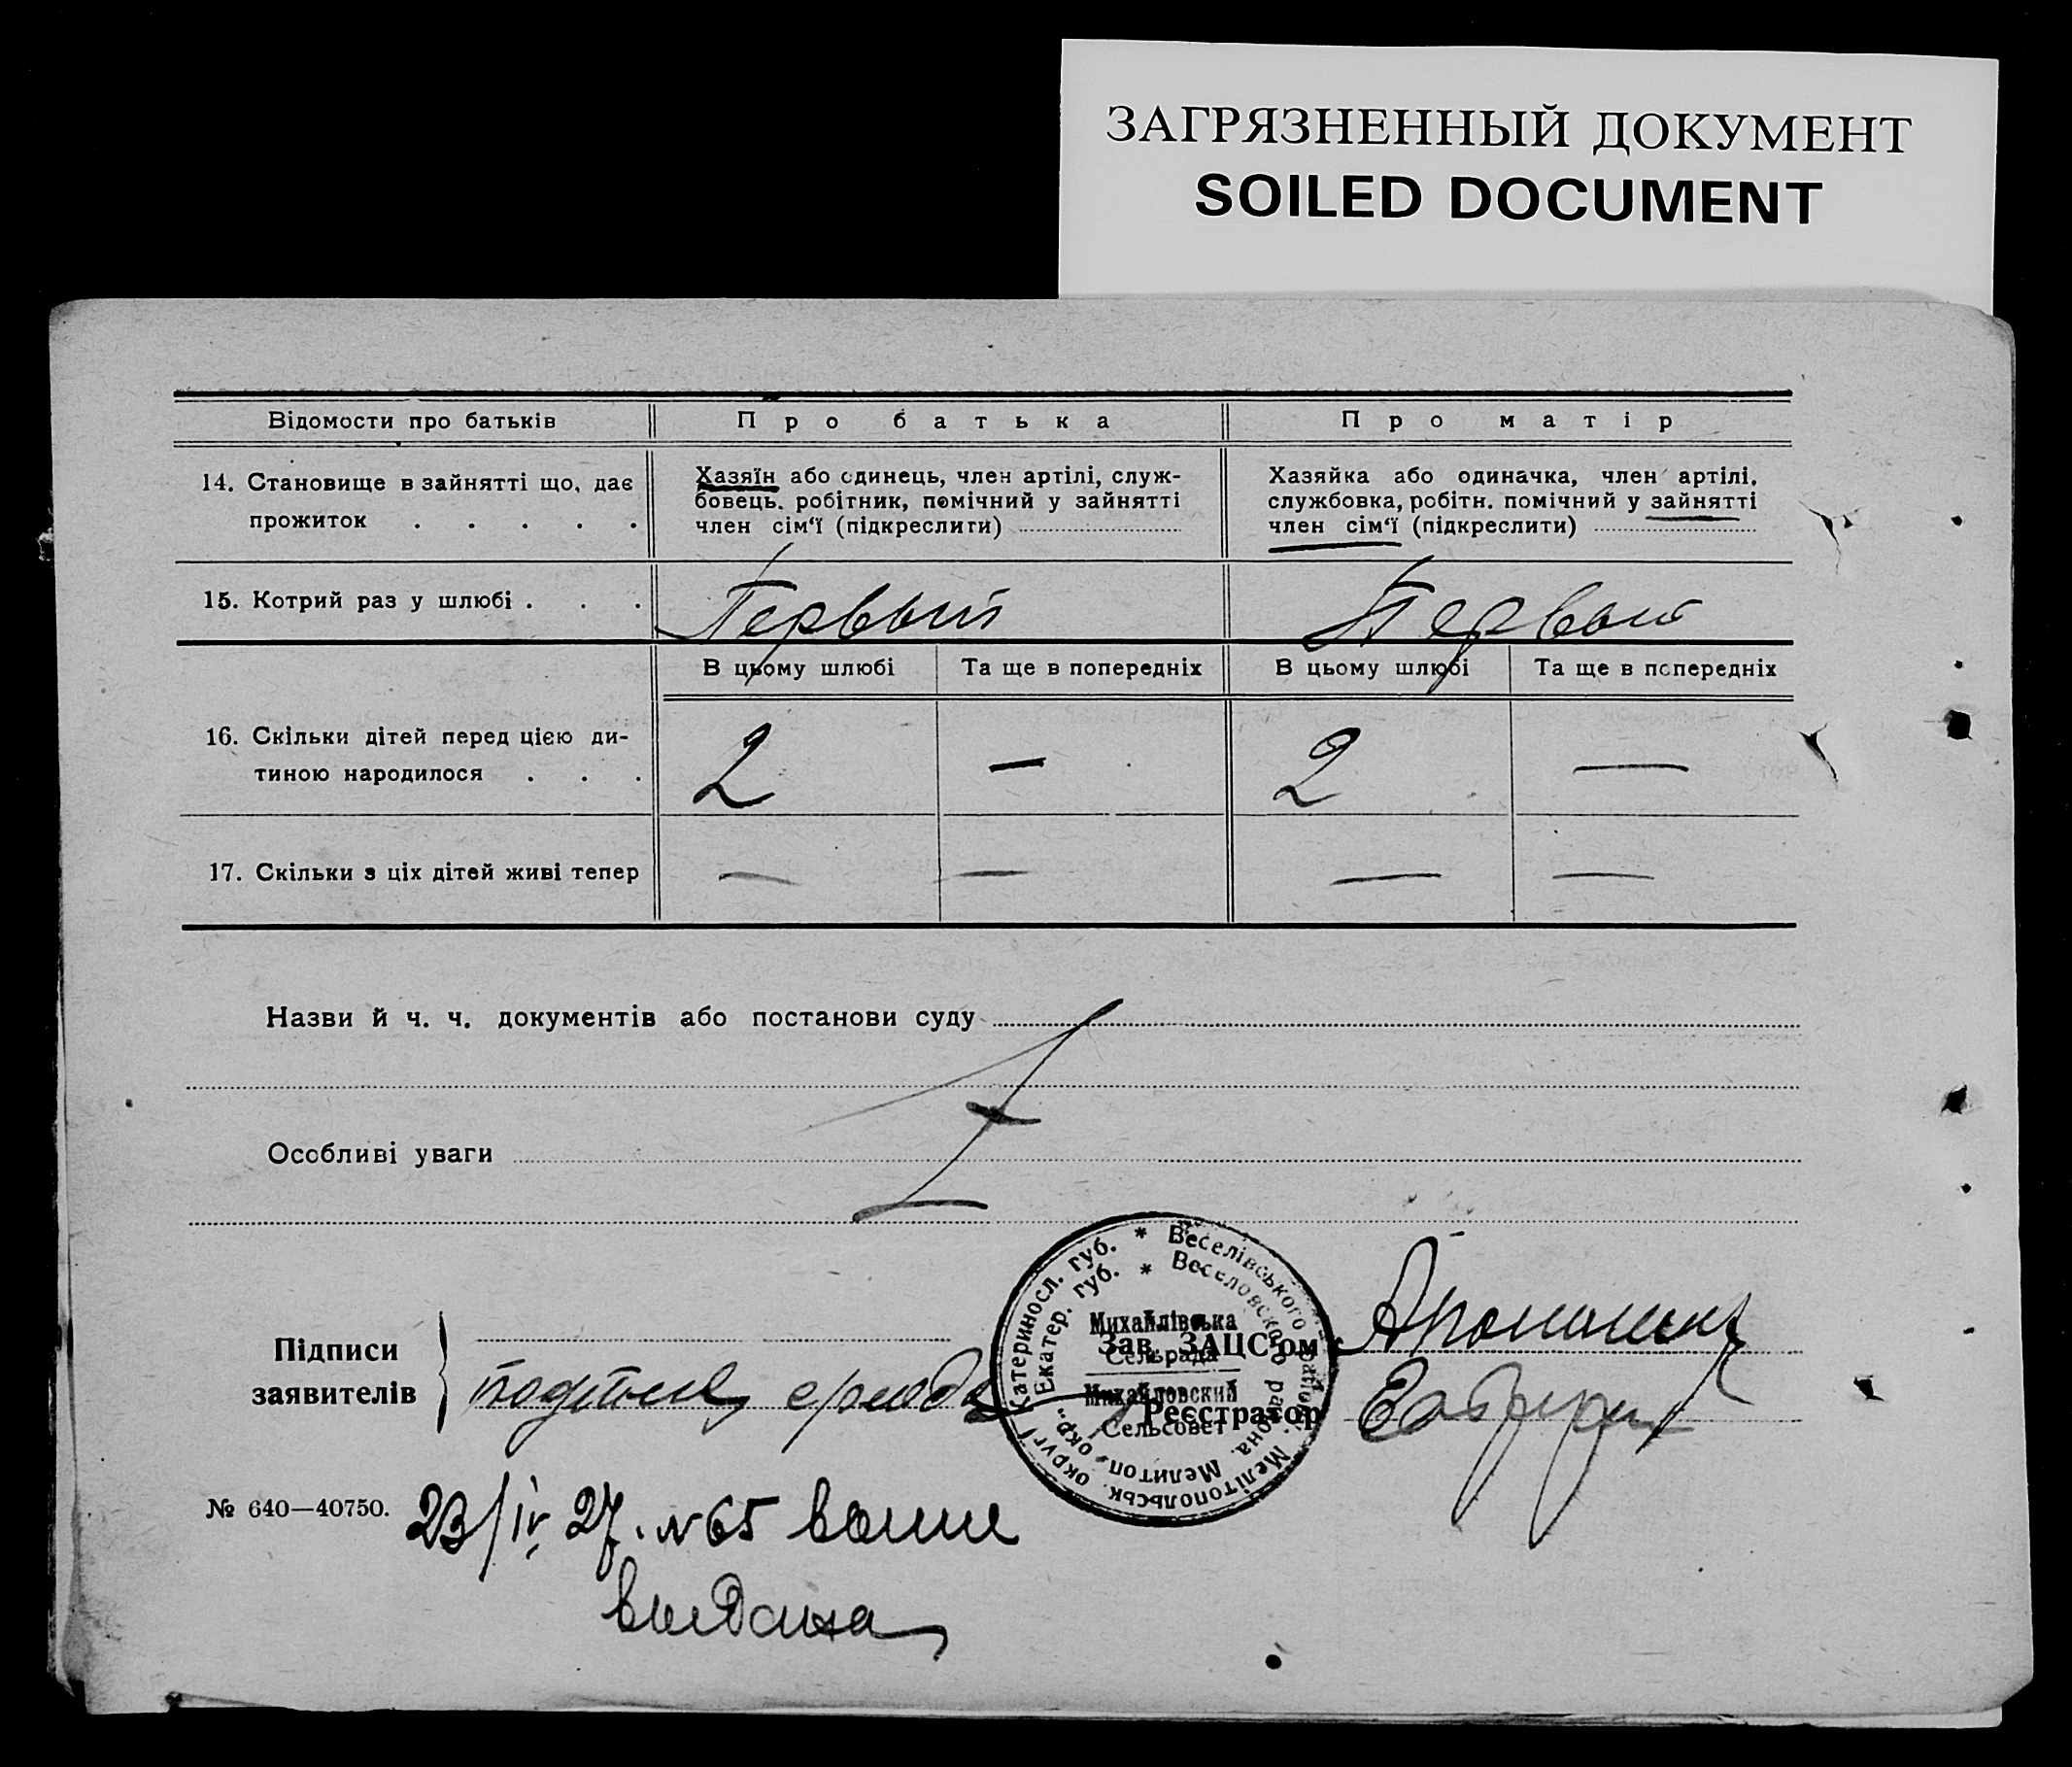 ЗАГРЯЗНЕННЫЙ ДОКУМЕНТ
SOILED DOCUMENT
Відомости про батьків
Про батька
Про матір
14. Становище в зайнятті що, дає
прожиток . . . . .
Хазяїн або одинець, член артілі, служ-
бовець, робітник, помічний у зайнятті
член сім'ї (підкреслити)
Хазяйка або одиначка, член артілі,
службовка, робітн. помічний у зайнятті
член сім'ї (підкреслити)
15. Котрий раз у шлюбі . . .
Первый
Первый
В цьому шлюбі
Та ще в попередніх
В цьому шлюбі
Та ще в попередніх
16. Скільки дітей перед цією ди-
тиною народилося . . .
2
—
2
—
17. Скільки з ціх дітей живі тепер
—
—
—
—
Назви й ч. ч. документів або постанови суду
Особливі уваги
Підписи
заявителів
Зав. ЗАЦС'ом
Реєстратор
Катериносл. губ. * Веселівського
Мелітопольськ. округ
Екатер. губ. * Веселовского района, Мелитоп. окр.
Михайлівська
Сельрада
Михайловский
Сельсовет
№ 640—40750.
23/IV 27. №65
выдана